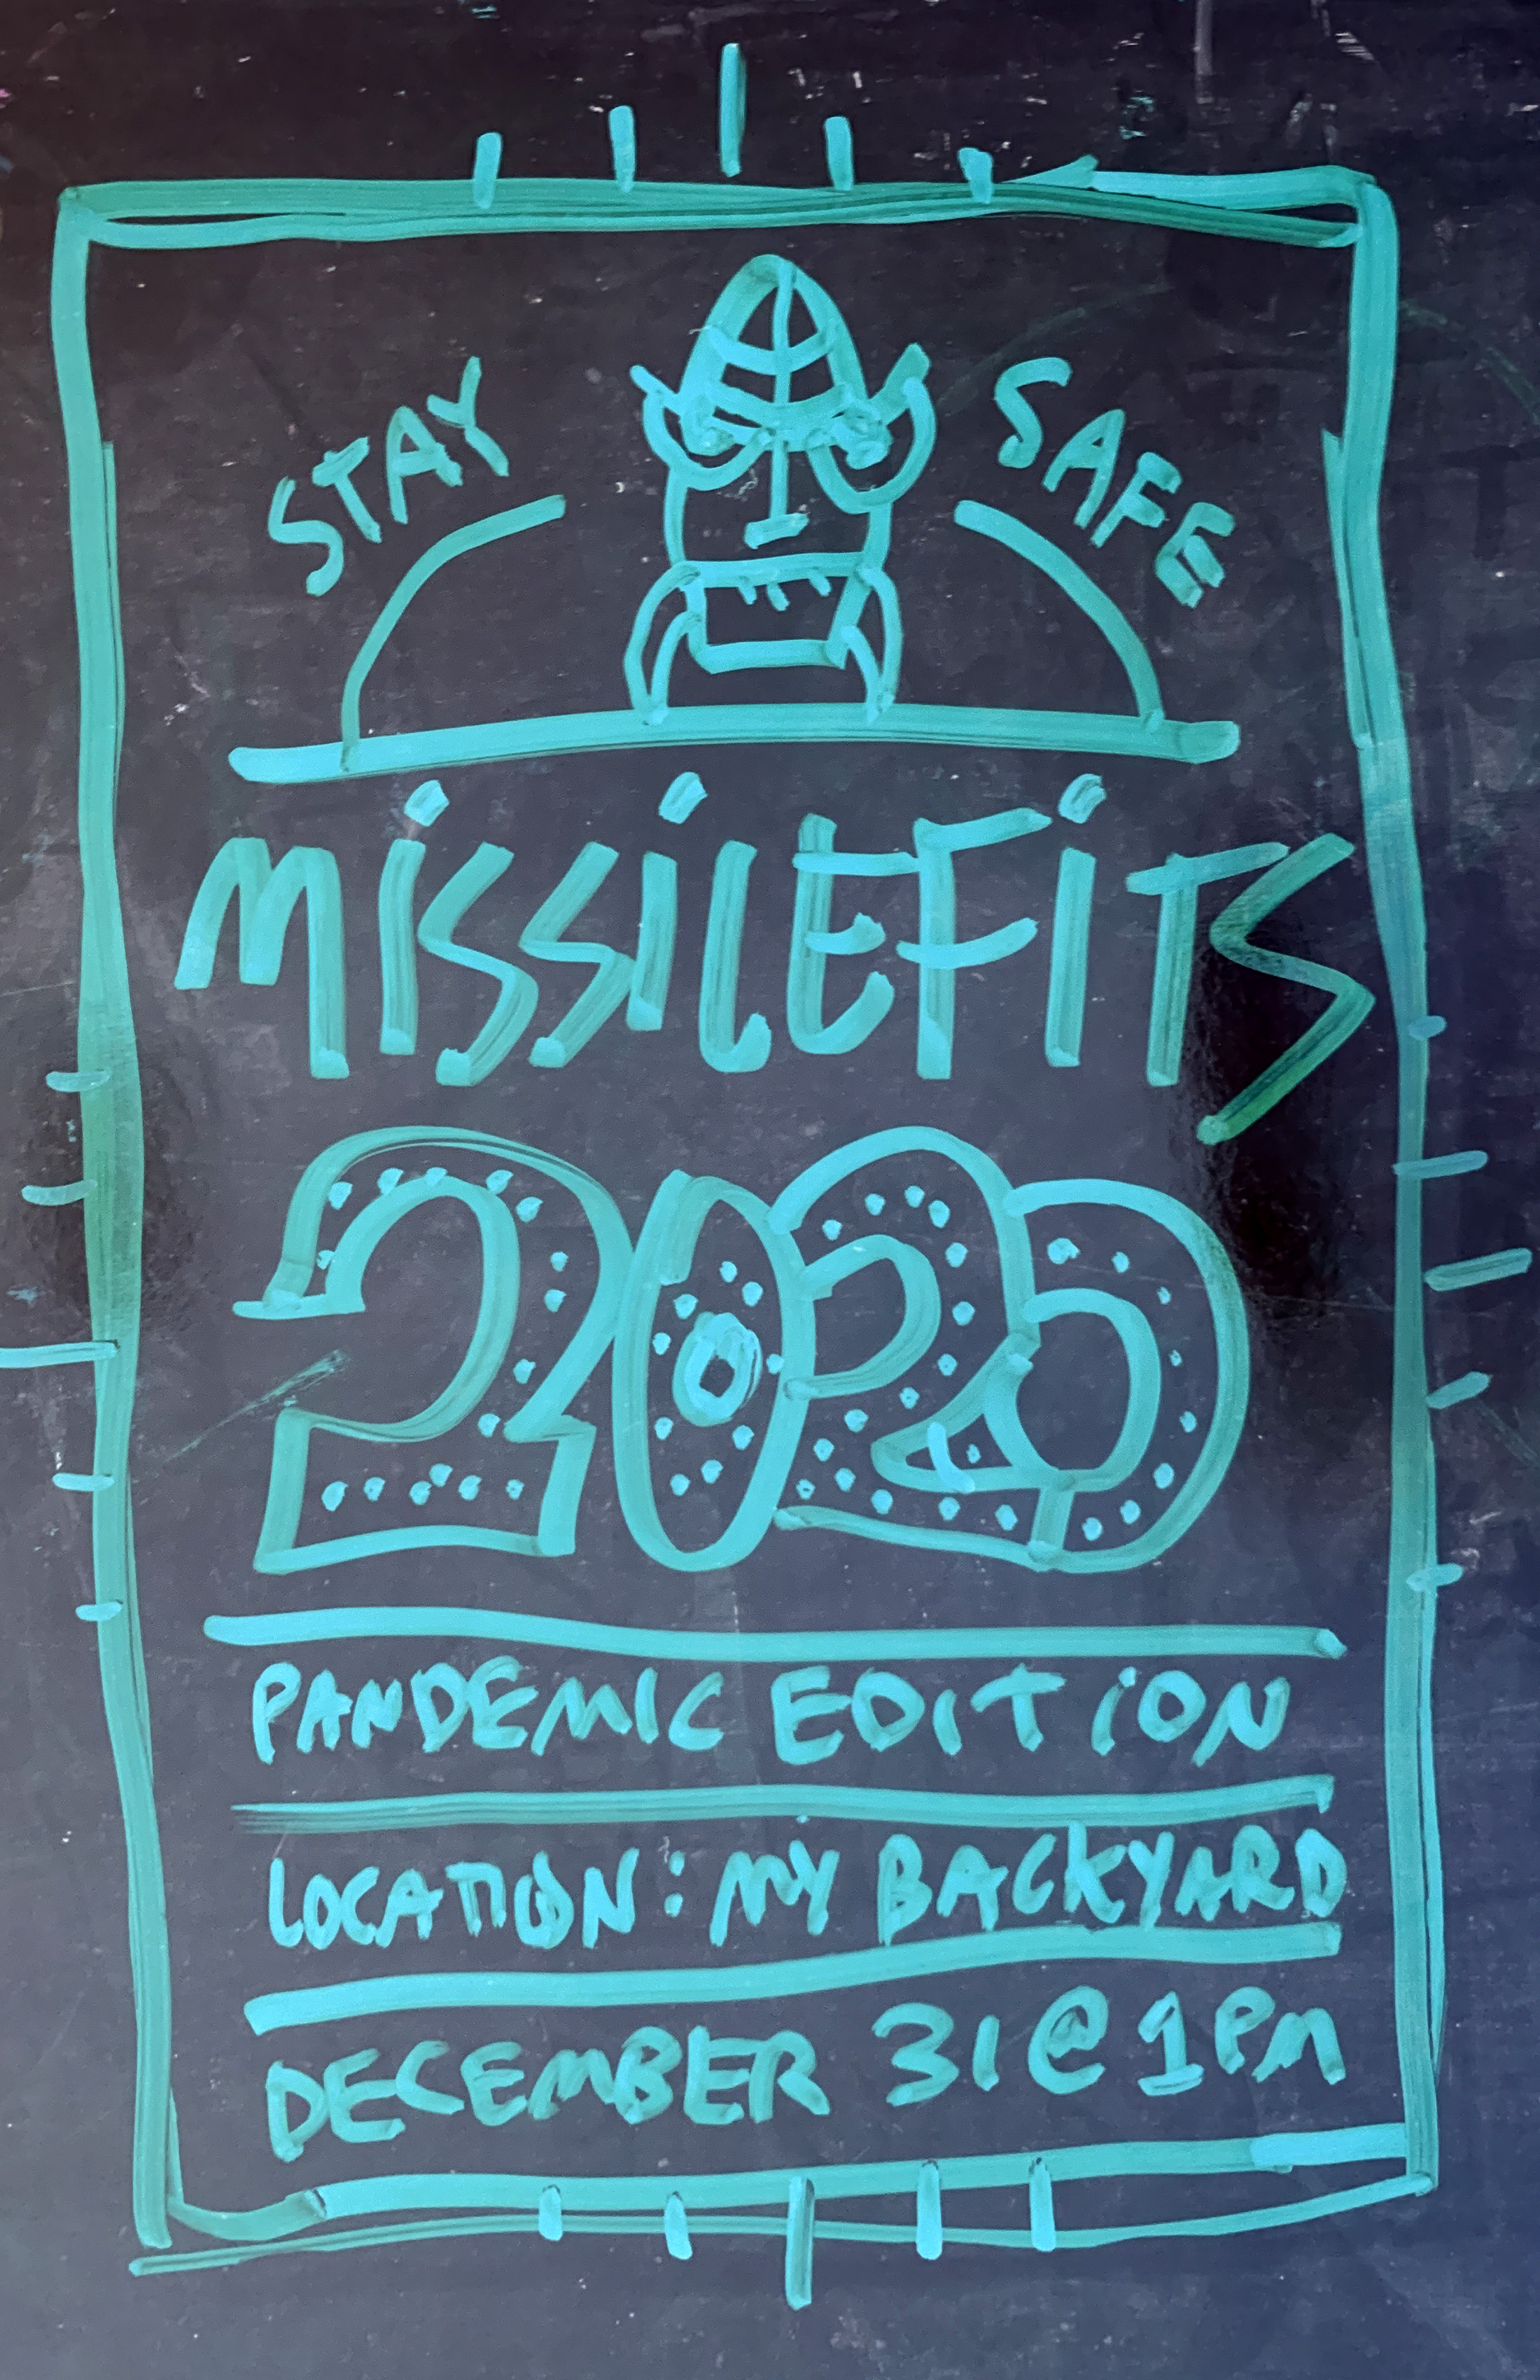 STAY SAFE
MISSILEFITS
2020
PANDEMIC EDITION
LOCATION: MY BACKYARD
DECEMBER 31 @ 1PM